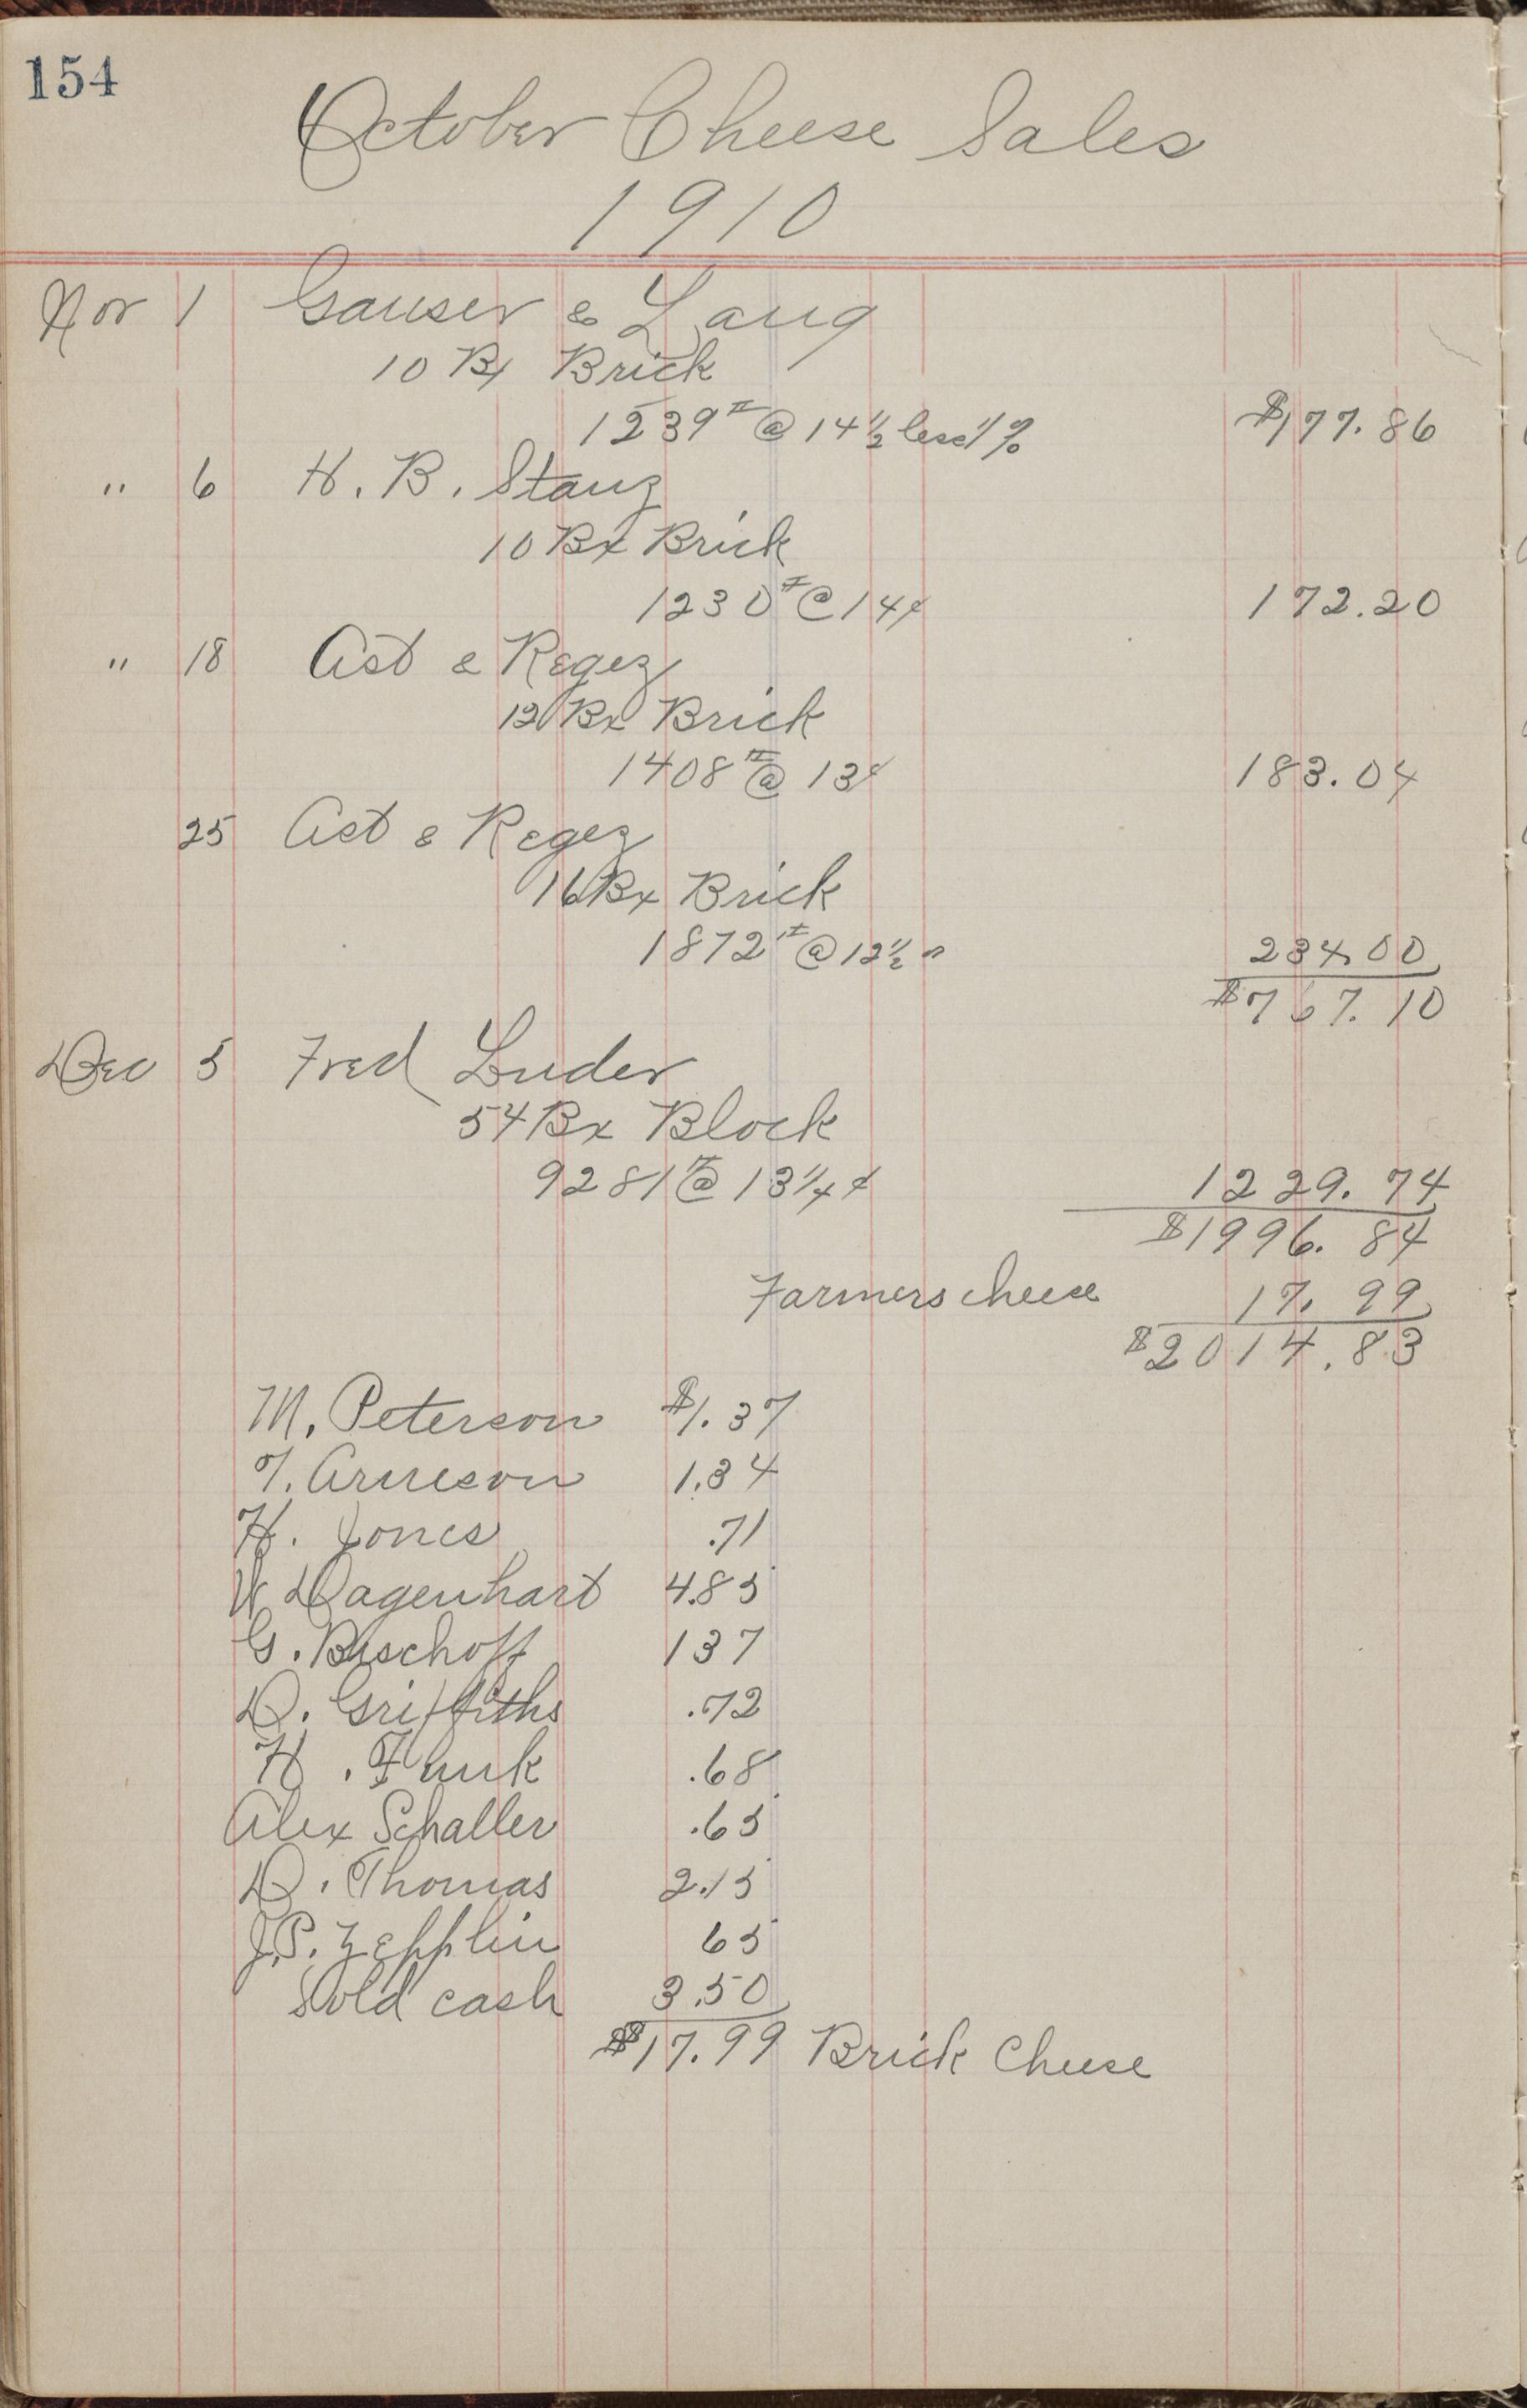 154
October Cheese Sales
1910
Nov 1 Gauser & Lang
10 Bx Brick
1239# @ 14½ less 1% $177.86
" 6 H. B. Stanz
10 Bx Brick
1230# @ 14¢ 172.20
" 18 Ast & Regez
12 Bx Brick
1408# @ 13¢ 183.04
25 Ast & Regez
16 Bx Brick
1872# @ 12½ " 234.00
$767.10
Dec 5 Fred Luder
54 Bx Block
9281# @ 13¼ ¢ 1229.74
$1996.84
Farmers cheese 17.99
$2014.83
M. Peterson $1.37
T. Arneson 1.34
H. Jones .71
W Dagenhart 4.85
G. Bischoff 137
D. Griffiths .72
H. Funk .68
Alex Schaller .65
D. Thomas 2.15
J.P. Zepplin 65
Sold cash 3.50
$17.99 Brick Cheese